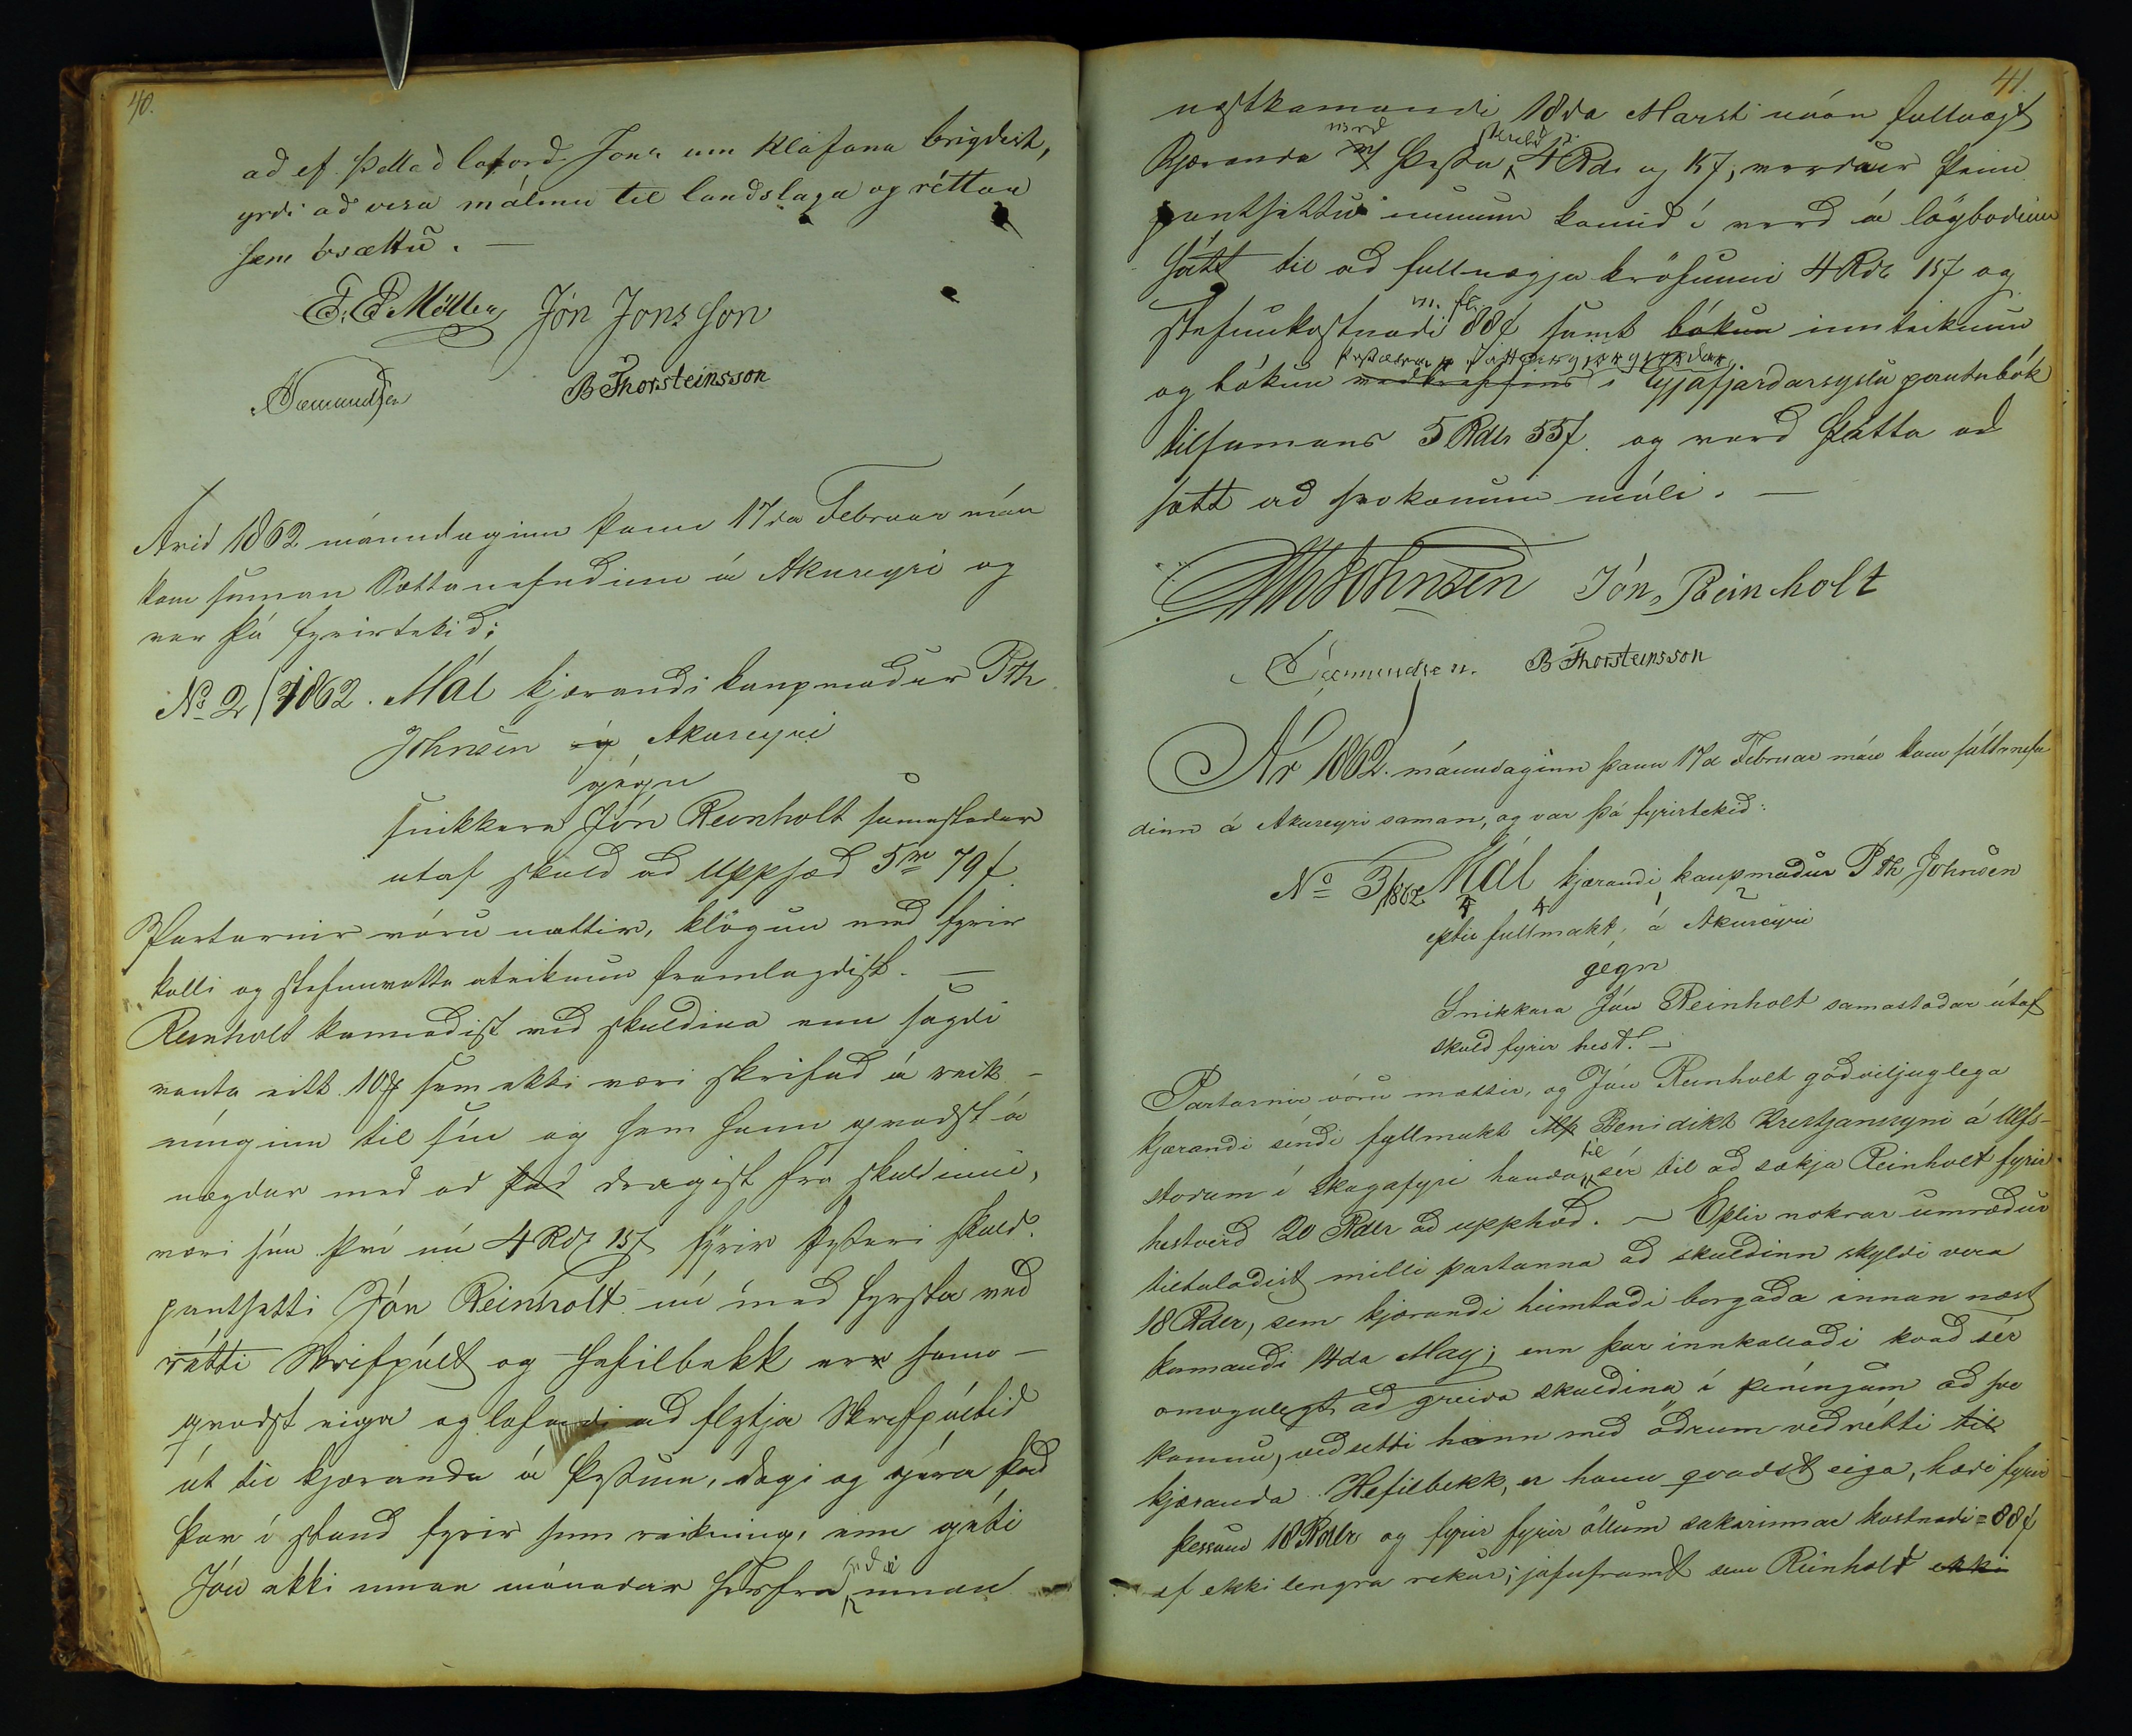 40.
að ef þetta loforð Jóns um kláfana brigðist,
yrði að vísa málinu til landslaga og réttar
sem ósættu. —
E. E. Möller Jón Jonsson
ASæmundsen B Thorsteinsson
Árið 1862 mánudaginn þann 17da Februar mán
kom saman Sættanefndinn á Akureyri og
var þá fyrirtekið:
No 2/1862. Mál kjærandi kaupmaður P Th
Johnsen á Akureyri
gegn
snikkara Jón Reinholt samastaðar
utaf skuld að upphæð 5 rd 79 s.
Partarnir vóru mættir, klögun með fyrir
kalli og stefnuvotta áteiknun framlagðist. —
Reinholt kannaðist við skuldina enn sagði
vanta eitt 10 s sem ekki væri skrifað á reik-
ninginn til sín og sem hann qvaðst á
nægður með að það dragist frá skuldinni,
væri hún því nú 4 Rdr 15 s fyrir þessari skuld
pantsetti Jón Reinholt nú með fyrsta veð
rétti Skrifpúlt og Hefilbekk er hann
qvaðst eiga og lofaði að flytja Skrifpúltið
út til kjæranda á þessum degi og gjöra það
þar í stand fyrir sinn reikning, enn gæti
Jón ekki innan mánaðar herfrá innan
41.
næstkomandi 18da Marsti mán fullnægt
Kjæranda með þessa skuld 4 Rdr og 15 s, verður þeim
pantsettu munum komið í verð á lögboðinn
hátt til að fullnægja kröfunni 4 Rdr 15 s og
stefnukostnaði m. fl. 88 s samt bókun innteiknun
þessarar sáttargjörgjörðar
og bókun veðbréfsins í Eyjafjarðarsyslu pantabók
tilsamans 5 Rdlr 55 s. og varð þátta að
sætt að svokomnu máli. —
PThJohnsen Jón Reinholt
ASæmundsen. B Thorsteinsson
Ár 1862. mánudaginn þann 17da Februar mán kom sáttanefn
dinn á Akureyri saman, og var þá fyrirtekið:
No 3/1862 Mál kjærandi kaupmaður P Th Johnsen
eptir fullmakt, á Akureyri
gegn
Snikkara Jón Reinholt samastaðar útaf
skuld fyrir hest. —
Partarnir vóru mættir, og Jón Reinholt góðviljuglega
kjærandi síndi fyllmakt Benidikt Kristjanssyni á Ulfs-
stoðum í Skagafyri handa sér til að sækja Reinholt fyrir
hestverð 20 Rdlr að upphæð. — Eptir nokrar umræður
tiltalaðist milli partanna að skuldinn skyldi vera
18 Rdlr, sem kjærandi heimtaði borgaða innan næst
komandi 14da May; enn þar innkallaði kvað sér
omögulegt að greiða skuldina í penínjum að svo
komnu, veðsetti hann með öðrum veðrétti til
kjæranda Hefilbekk, er hann qvaðst eiga, bæði fyrir
þessum 18 Rdlr og fyrir fyrir öllum sakarinnar kostnaði = 88 s
ef ekki lengra rekur; jafnframt sem Reinholt ekki